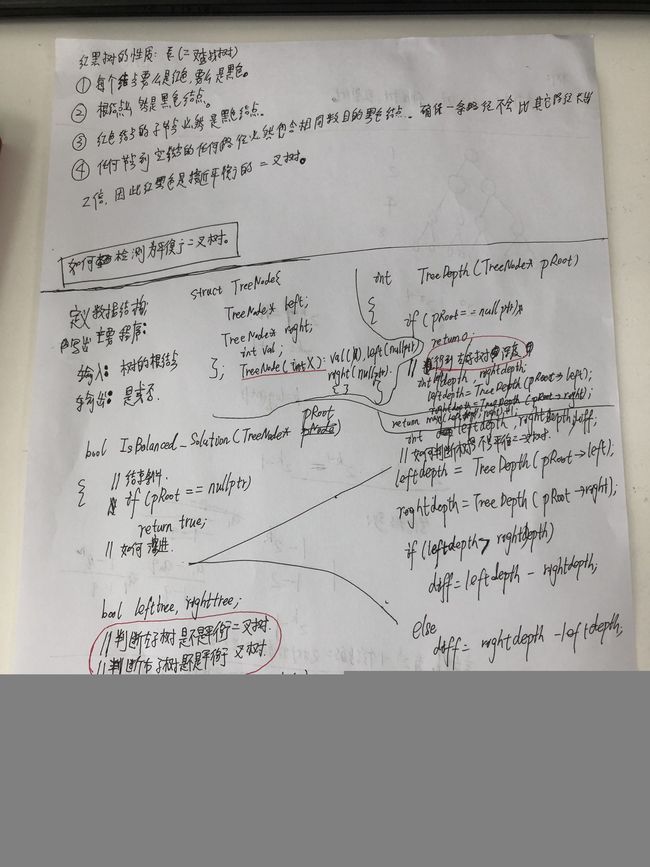 红黑树的性质: (二叉查找树)
① 每个结点要么是红色,要么是黑色。
② 根结点必须是黑色结点。
③ 红色结点的子节点必然是黑色结点.
④ 任何节点到空结的任何路径必然包含相同数目的黑色结点. 确保一条路径不会比其它路径大出
2倍, 因此红黑色是接近平衡的二叉树。
如何检测为平衡二叉树。
定义数据结构
写出主要程序:
输入: 树的根结点
输出: 是或否.
struct TreeNode{
TreeNode* left;
TreeNode* right;
int val;
TreeNode(int X): val(X), left(nullptr)
right(nullptr).
{ }
};
int TreeDepth(TreeNode* pRoot)
{
if (pRoot == nullptr)
return 0;
// 得到左右子树深度
int leftdepth, rightdepth;
leftdepth = TreeDepth(pRoot->left);
rightdepth = TreeDepth(pRoot->right);
return
bool IsBalanced_Solution(TreeNode* pRoot)
{
// 结束条件.
if (pRoot == nullptr)
return true;
// 如何递进.
int leftdepth, rightdepth, diff;
// 如何判断树是不是平衡二叉树.
leftdepth = TreeDepth(pRoot->left);
rightdepth = TreeDepth(pRoot->right);
if (leftdepth > rightdepth)
diff = leftdepth - rightdepth;
else
diff = rightdepth - leftdepth;
bool lefttree, righttree;
// 判断左子树是不是平衡二叉树.
// 判断右子树是不是平衡二叉树.